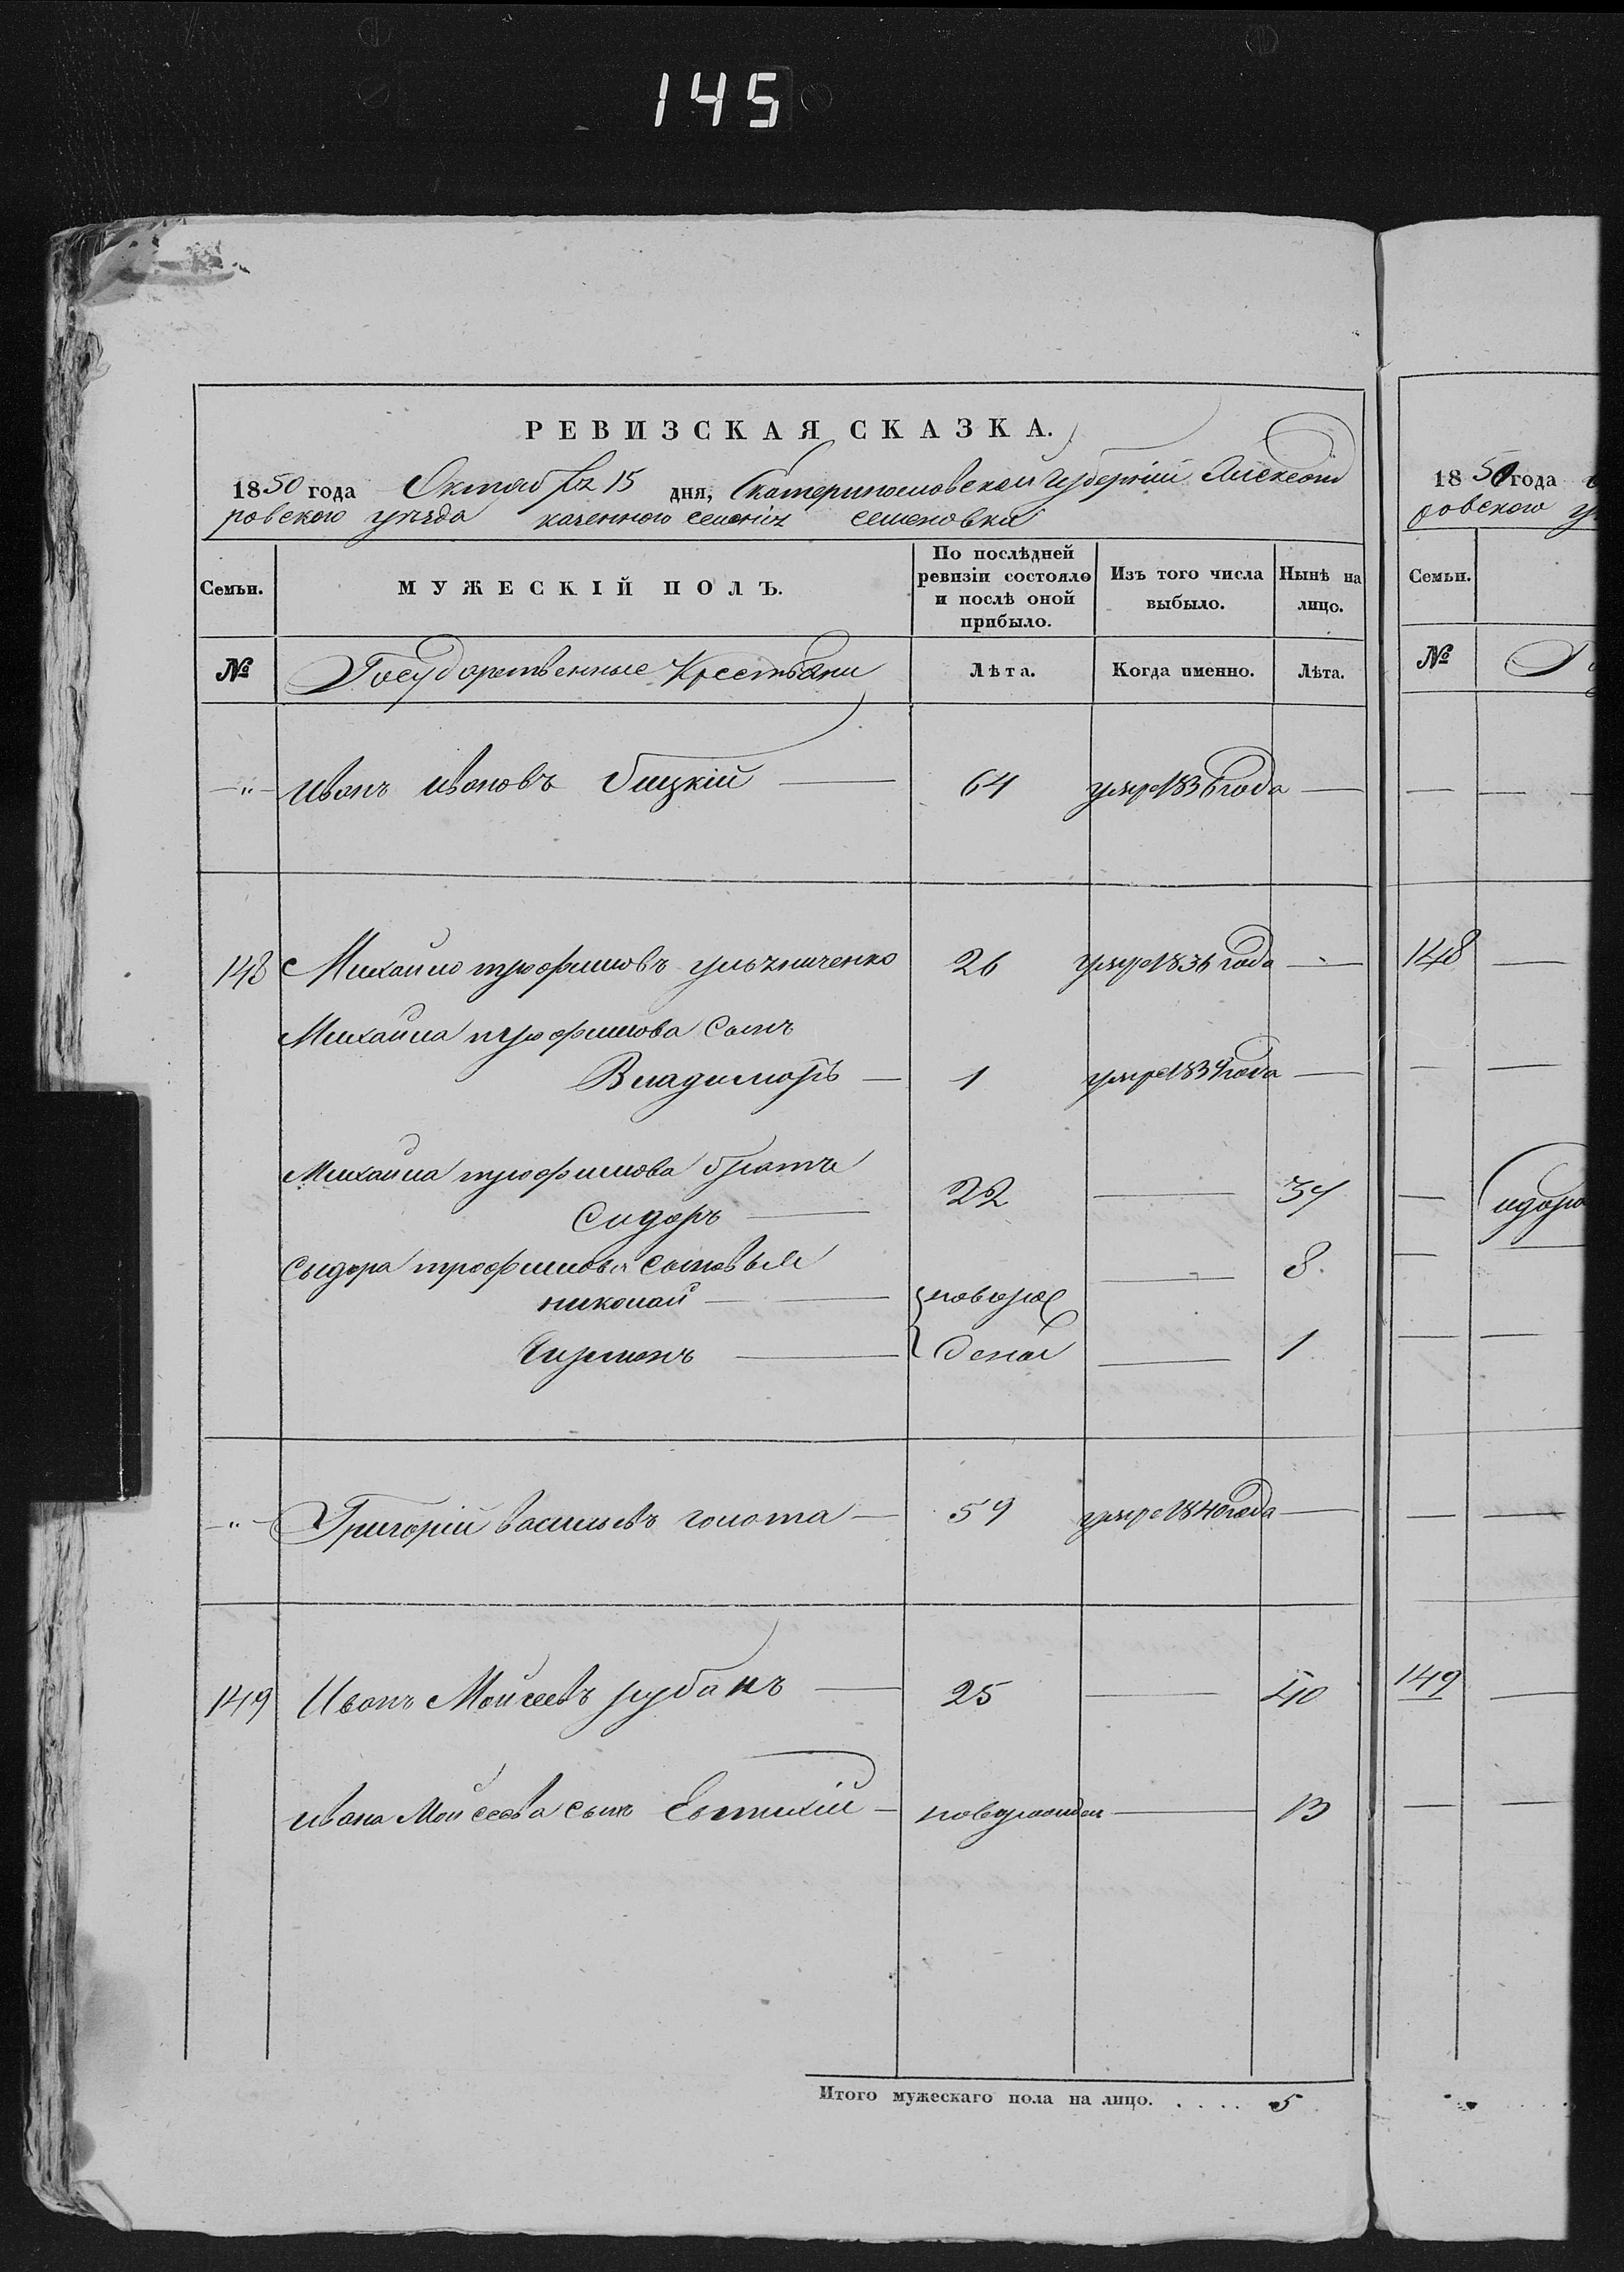 145
РЕВИЗСКАЯ СКАЗКА.
1850 года Октября 15 дня, Екатеринославской губернiи Александ
ровского уезда казенного селенiя семеновки
Семьи. МУЖЕСКІЙ ПОЛЪ. По послѣдней ревизіи состояло и послѣ оной прибыло. Изъ того числа выбыло. Нынѣ на лицо.
№ Государственные Крестьяни Лѣта. Когда именно. Лѣта.
-"- Иванъ Ивановъ билкiй 64 умре 1836 года —
148 Михайло трофимовъ 26 умре 1836 года —
Михайла трофимова сынъ
Владиморъ — 1 умре 1839 года —
Михайла трофимова братъ
Сидоръ — 22 — 37
Сыдора трофимова сыновья
николай — новорож — 8.
— денои — 1
-"- Григорiй васильевъ голота — 59 умре 1840 года —
149 Иванъ Мойсеевъ рубанъ — 25 — 40
ивана Мойсеева сынъ Евтихiй — новорожден — 13
Итого мужескаго пола на лицо. . . . . 5
1850 года
ровского
Семьи.
№
148
идора
149